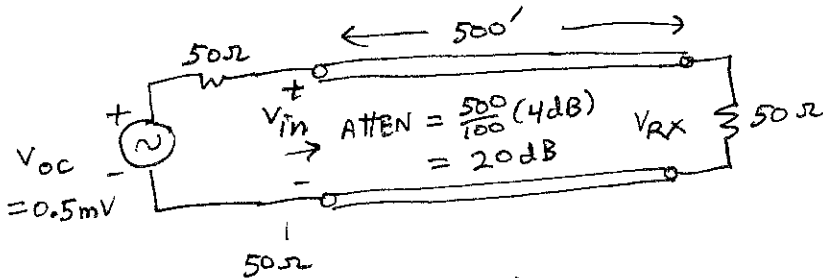 500'
50Ω
+
+
Vin
ATTEN = 500/100 (4dB)
= 20dB
VRX
50Ω
Voc
-
= 0.5mV
-
50Ω